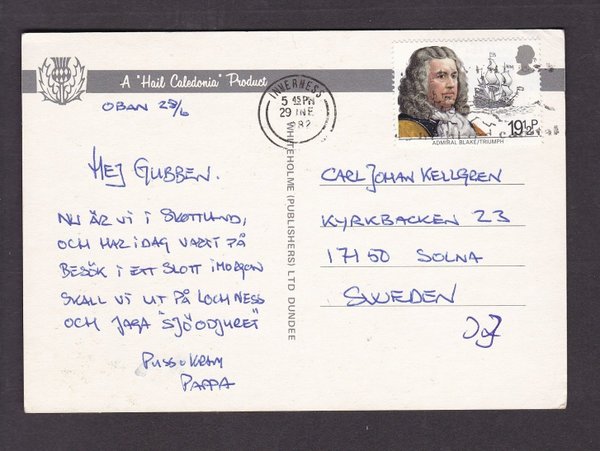 A "Hail Caledonia" Product
OBAN 28/6
HEJ GUBBEN.
NU ÄR VI I SKOTTLAND,
OCH HAR IDAG VARIT PÅ
BESÖK I ETT SLOTT IMORGON
SKALL VI UT PÅ LOCH NESS
OCH JAGA "SJÖODJURET"
PUSS o KRAM
PAPPA
WHITEHOLME (PUBLISHERS) LTD DUNDEE
INVERNESS
5 45 PM
29 JNE
1982
19½P
ADMIRAL BLAKE/TRIUMPH
CARL JOHAN KELLGREN
KYRKBACKEN 23
171 50 SOLNA
SWEDEN